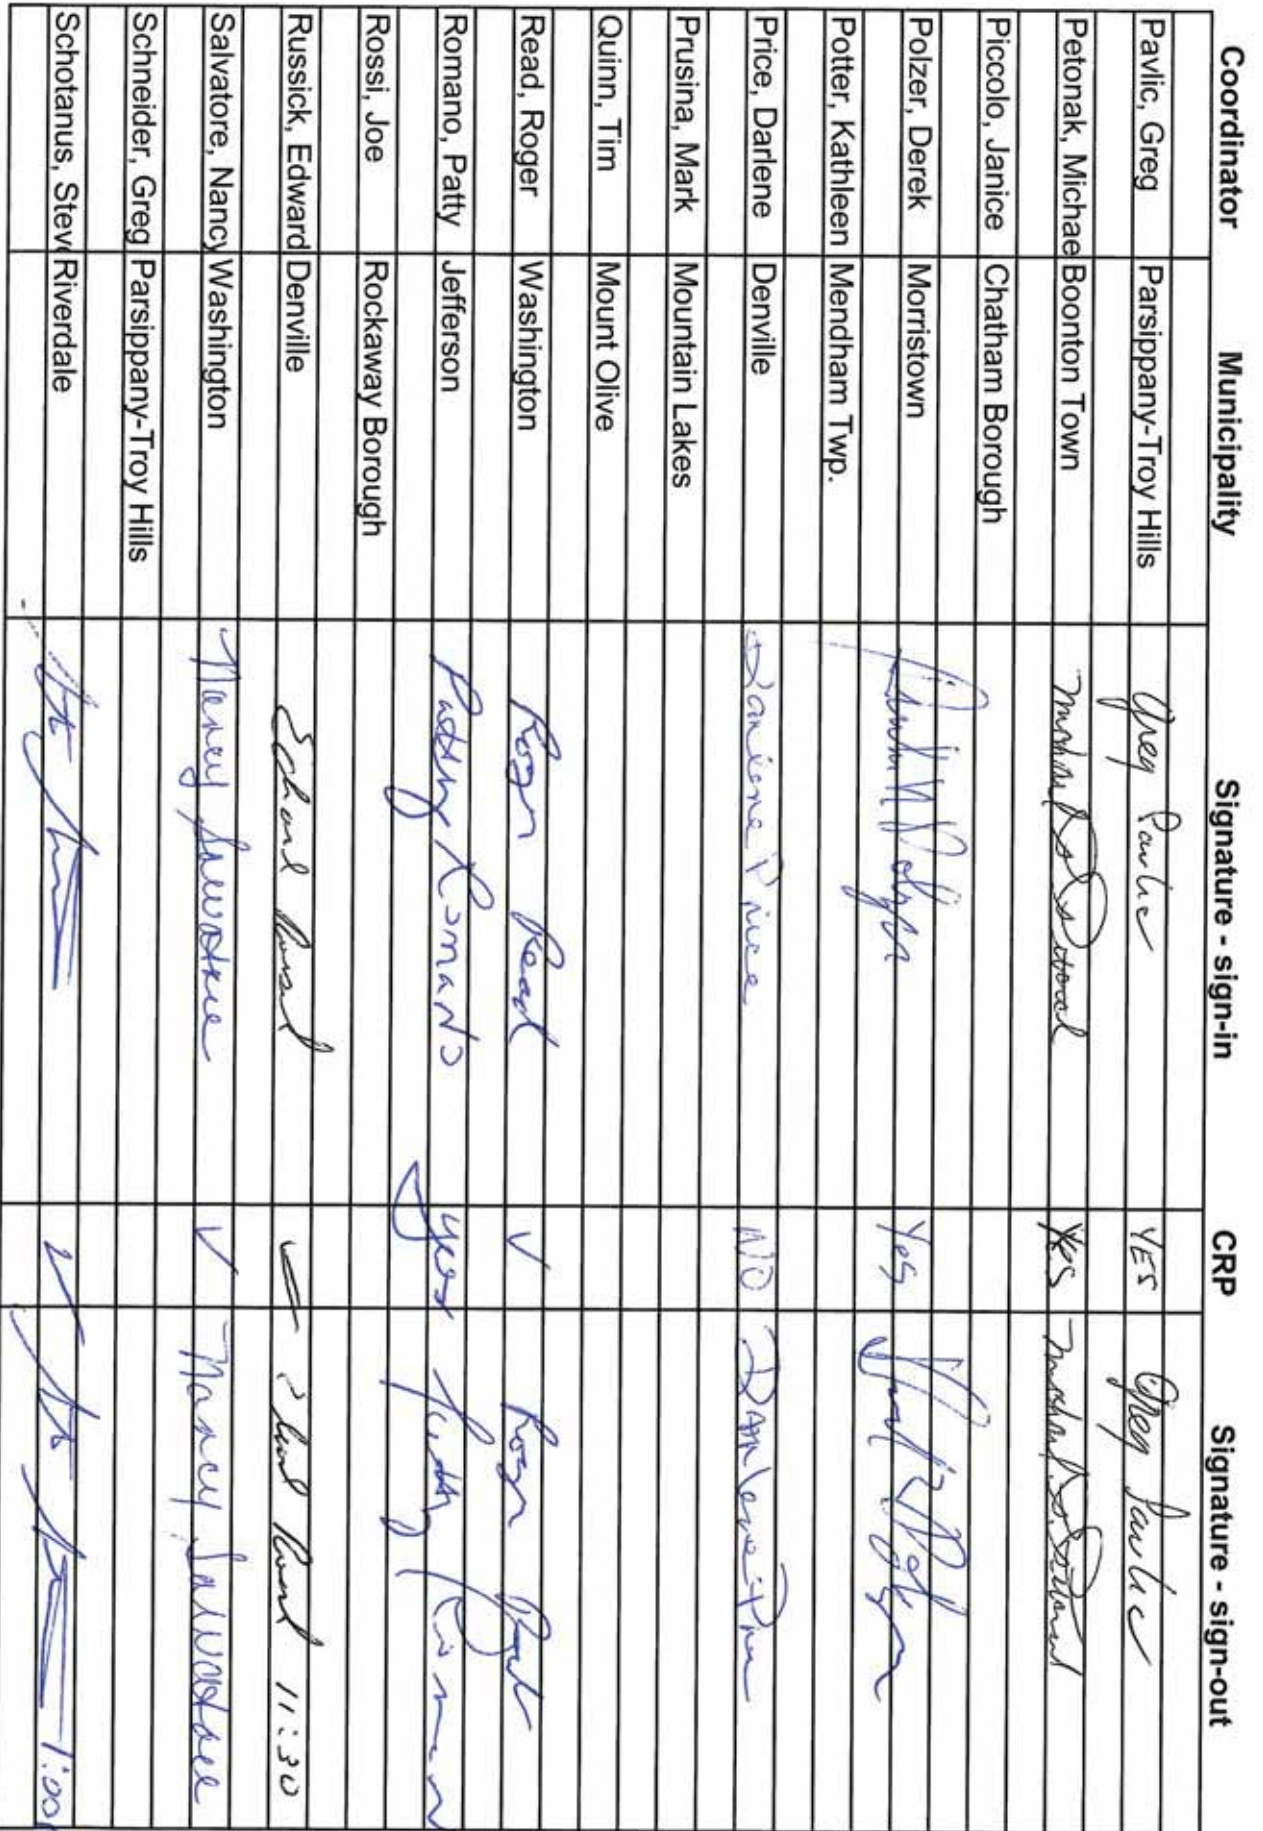 Coordinator Municipality Signature - sign-in CRP Signature - sign-out
Pavlic, Greg Parsippany-Troy Hills Greg Pavlic YES Greg Pavlic
Petonak, Michae Boonton Town Yes
Piccolo, Janice Chatham Borough
Polzer, Derek Morristown Yes
Potter, Kathleen Mendham Twp.
Price, Darlene Denville Darlene Price NO Darlene Price
Prusina, Mark Mountain Lakes
Quinn, Tim Mount Olive
Read, Roger Washington Roger Read ✓ Roger Read
Romano, Patty Jefferson Patty Romano yes Patty Romano
Rossi, Joe Rockaway Borough
Russick, Edward Denville ✓ 11:30
Salvatore, Nancy Washington Nancy Salvatore ✓ Nancy Salvatore
Schneider, Greg Parsippany-Troy Hills
Schotanus, Stev Riverdale ✓ 1:00